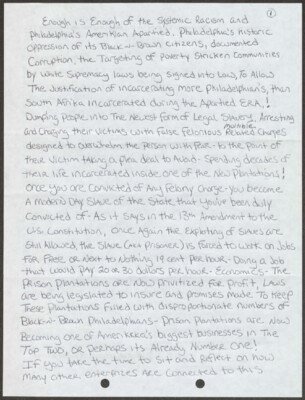 ①
Enough is Enough of the Systemic Racism and
Philadelphia's Amerikkan Apartied. Philadelphia's historic
oppression of its Black-n-Brown Citizens, documented
Corruption, the Targeting of poverty Stricken Communities
by White Supremacy laws being Signed into Law, To Allow
The Justification of incarcerating more Philadelphian's, than
South Afrika incarcerated during the Apartied ERA!
Dumping people into The Newest Form of Legal Slavery, Arresting
and Charging their Victims with False Felonious Multiple Related Charges
designed to overwhelm the person with Fear- to the point of
these Victim taking a plea deal to Avoid- Spending decades of
their life incarcerated inside one of the New Plantations!
Once you are Convicted of Any Felony Charge- you become
A modern Day Slave of the State that you've been duly
Convicted of- As it Says in the 13th Amendment to the
U.S. Constitution, Once Again the Exploiting of Slaves are
Still Allowed the Slave (aka prisoner) is forced to work on Jobs
For Free or Next to Nothing 19 cent per hour- Doing a Job
that would pay 20 or 30 dollars per hour- Economics- The
Prison Plantations are Now privitized for profit, Laws
are being legislated to insure and promises made To Keep
These Plantations Filled with disproportionate numbers of
Black-n-Brown Philadelphians- Prison Plantations are Now
Becoming one of Amerikkka's biggest businesses in The
Top Two, or perhaps its Already Number One!
If you take the time to Sit and Reflect on how
Many other enterprises are Connected to this